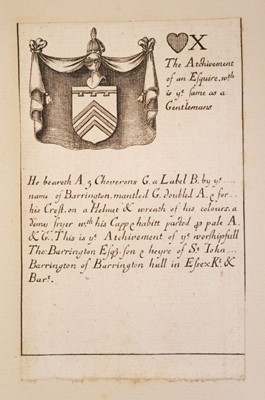 X
The Atchivement
of an Esquire, wch
is ye same as a
Gentlemans
He beareth A 3 Cheverons G. a Label B. by ye
name of Barrington, mantled G. doubled A. & for
his Crest, on a Helmet & wreath of his colours, a
fryer wth his Capp & habitt parted pale A
& G. This is ye Atchivement of ye worshipfull
Tho: Barrington Esqr. son & heyre of Sr. John
Barrington of Barrington hall in Essex Kt. &
Bart.